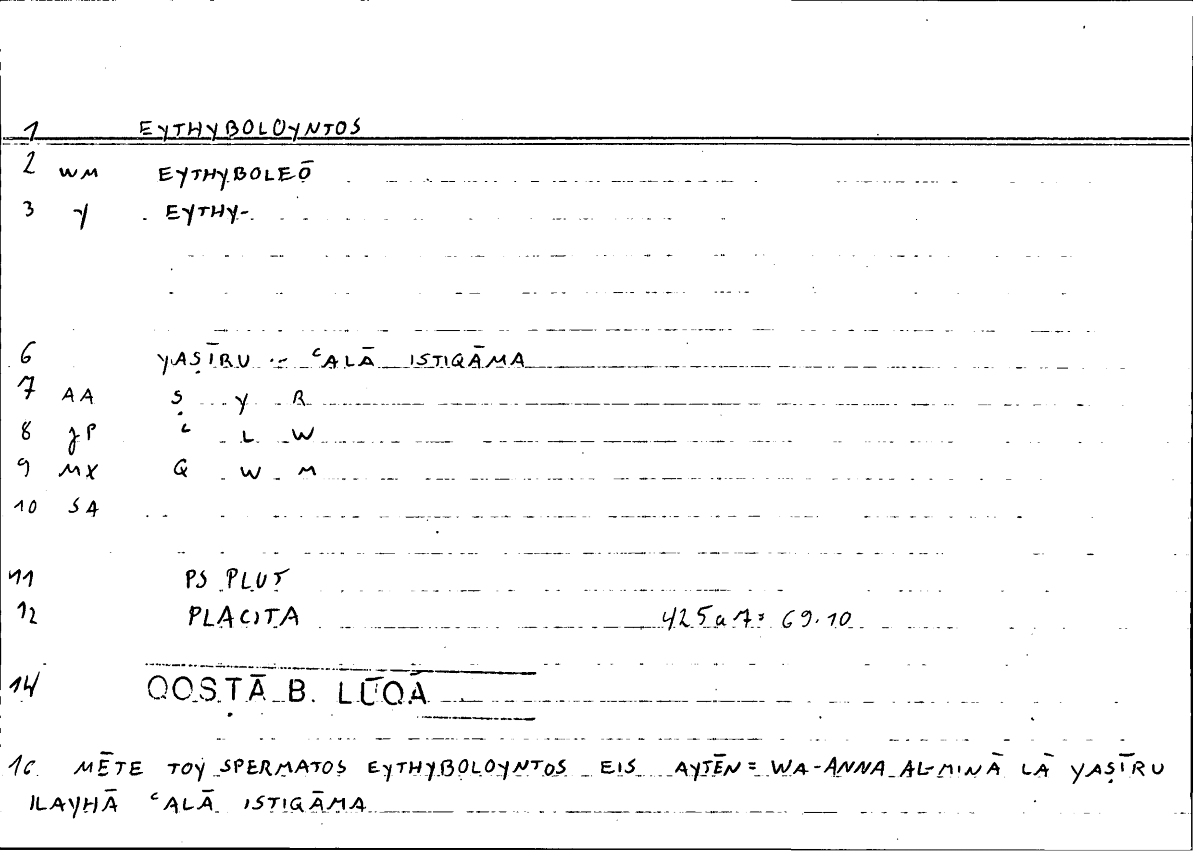 1 EYTHYBOLOYNTOS
2 WM EYTHYBOLEŌ
3 Y EYTHY-
6 YAṢĪRU -- ʿALĀ ISTIQĀMA
7 AA Ṣ Y R
8 JP ʿ L W
9 MX Q W M
10 SA
11 PS PLUT
12 PLACITA 425a7= 69.10
14 QOSṬĀ B. LŪQĀ
16 MĒTE TOY SPERMATOS EYTHYBOLOYNTOS EIS AYTĒN = WA-ANNA AL-MINĀ LĀ YAṢĪRU
ILAYHĀ ʿALĀ ISTIQĀMA